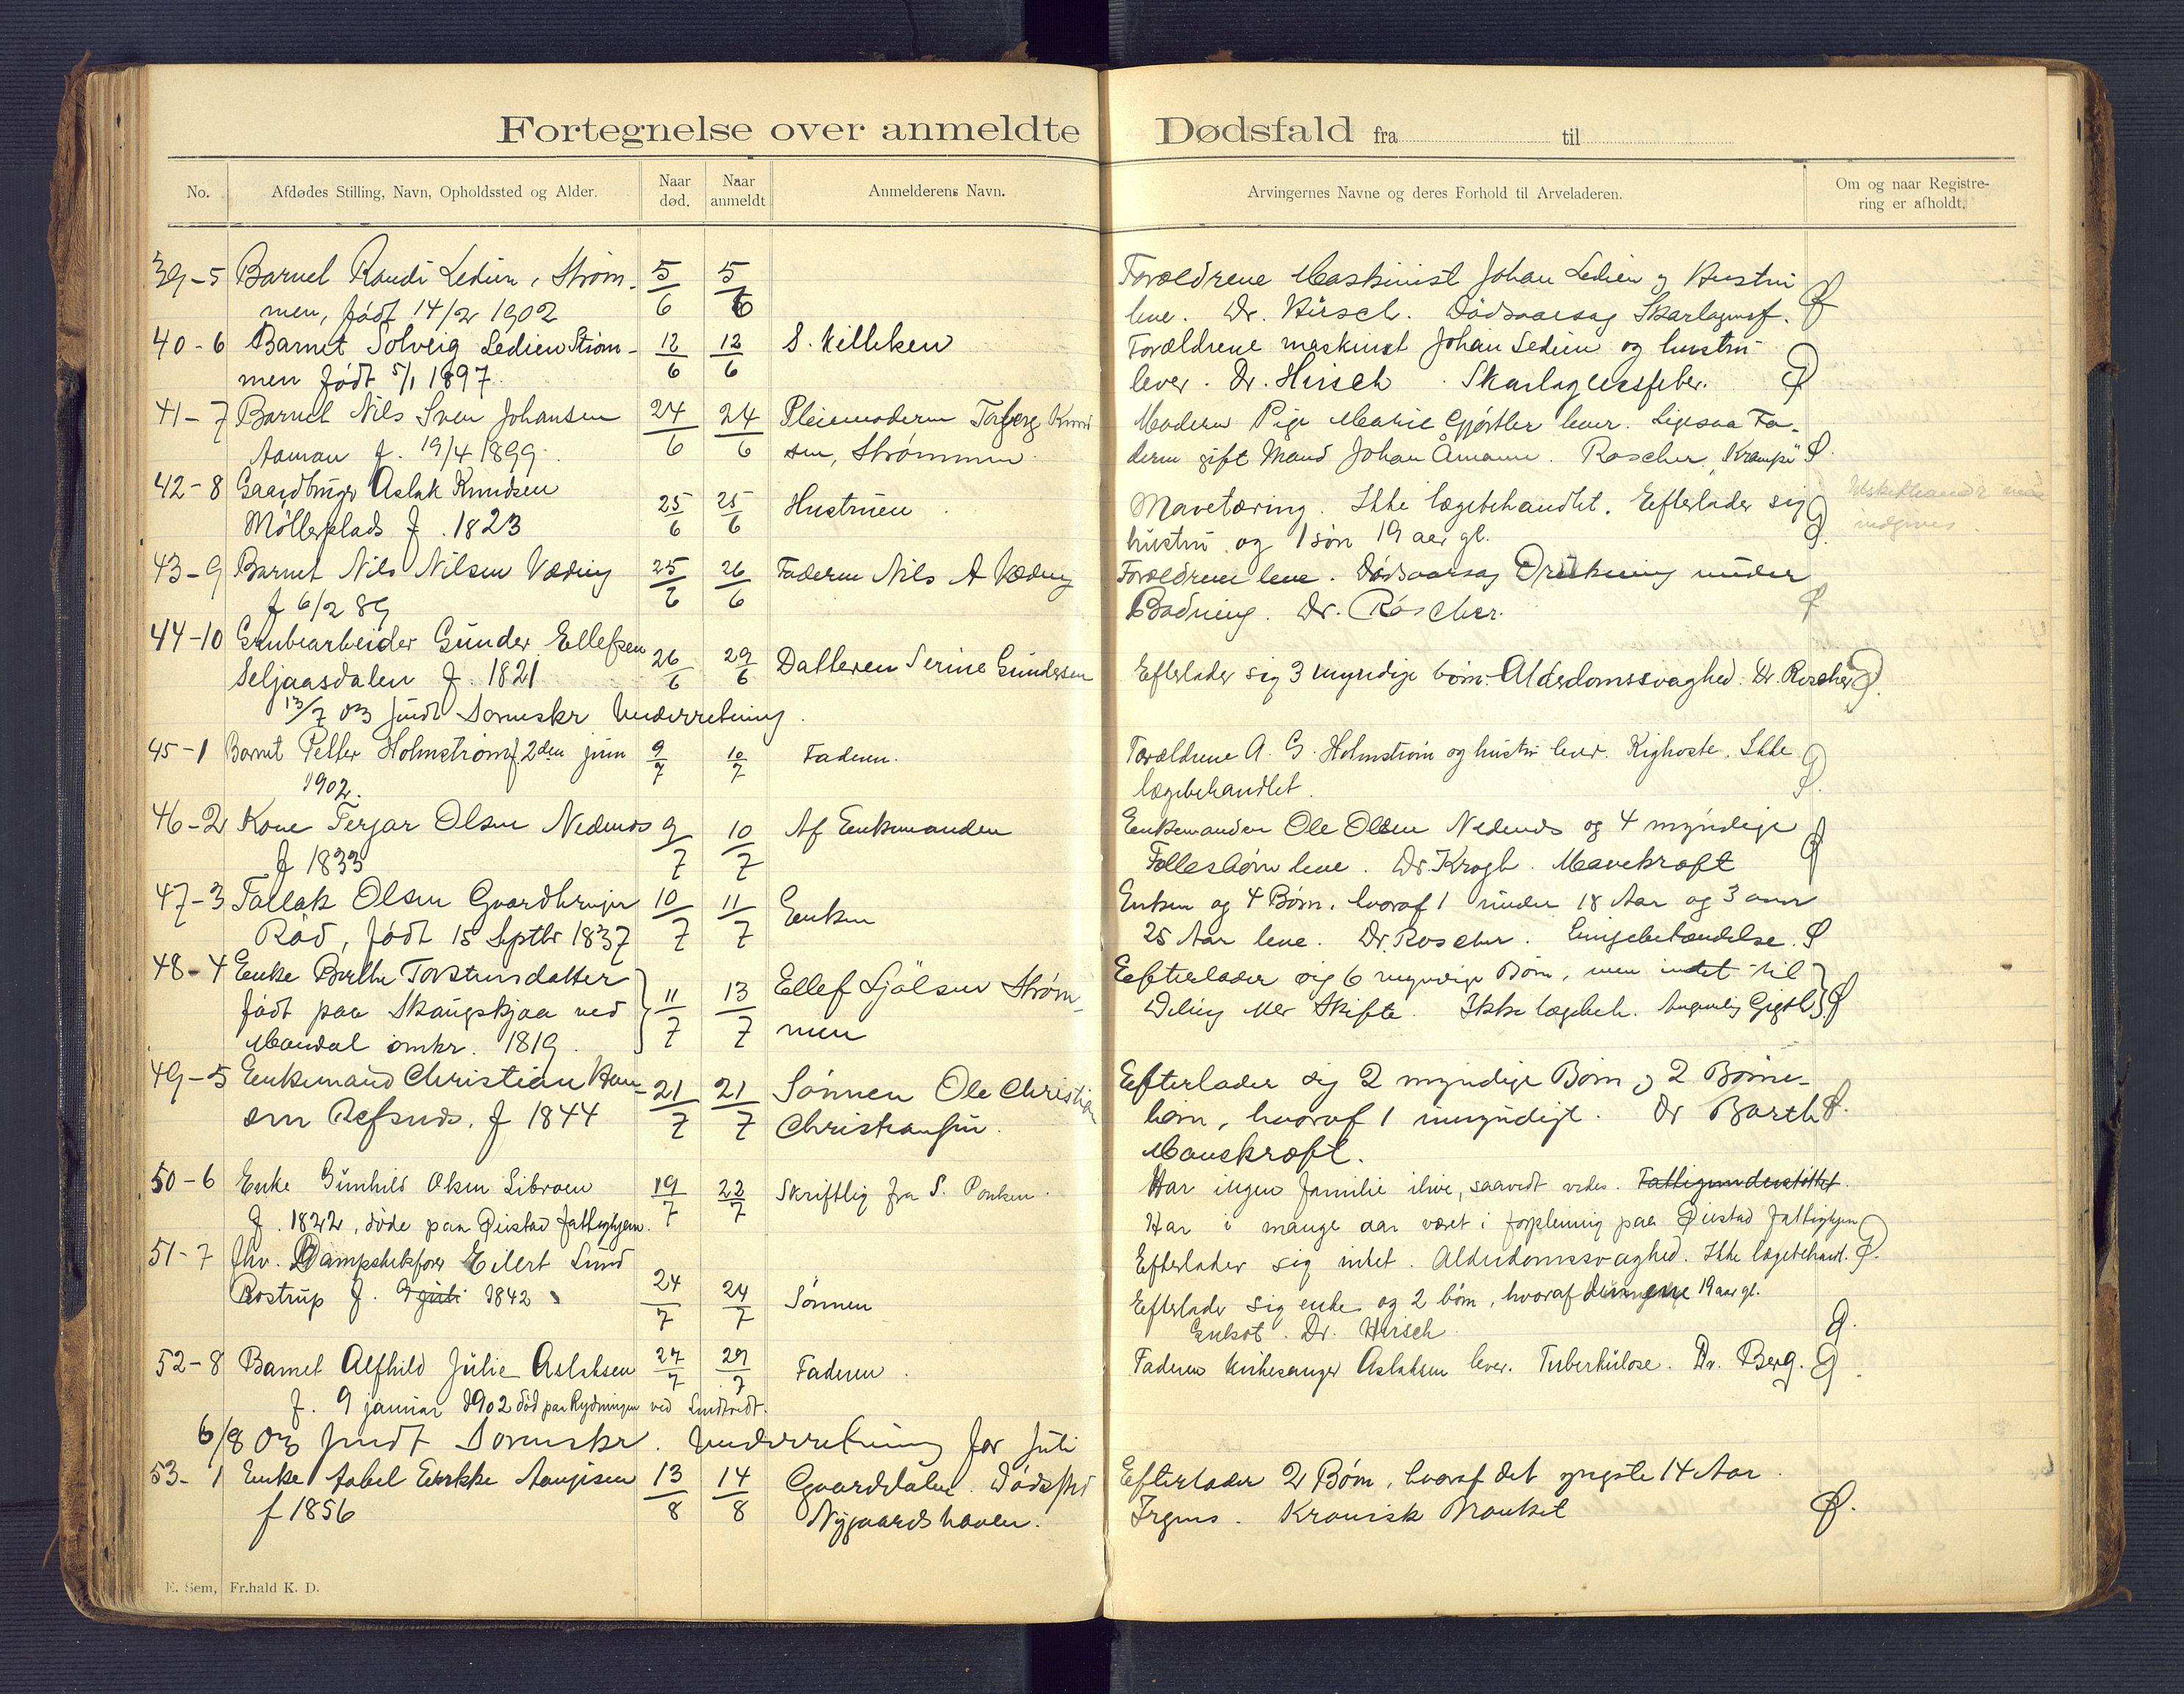 Fortegnelse over anmeldte Dødsfald fra til
No.
Afdødes Stilling, Navn, Opholdssted og Alder.
Naar død.
Naar anmeldt
Anmelderens Navn.
Arvingernes Navne og deres Forhold til Arveladeren.
Om og naar Registre-
ring er afholdt.
39-5 Barnet Randi Ledien, Strøm- 5/6 5/6 Forældrene Maskinist Johan Ledien og Hustru
men, født 14/2 1902 leve. Dr. Hirsch. Dødsaarsag Skarlagensf.
40-6 Barnet Solveig Ledien Strøm- 12/6 12/6 S. Killiken Forældrene maskinist Johan Ledien og hustru
men født 5/1 1897. lever. Dr. Hirsch. Skarlagensfeber.
41-7 Barnet Nils Sven Johansen 24/6 24/6 Pleiemoderen Torberg Knud Moderen Pige Marie Gjørtler lever. Ligesaa Fa-
Aaman f. 19/4 1899. sen, Strømmen deren gift Mand Johan Åmann. Roscher "Krampe"
42-8 Gaardbruger Aslak Knudsen 25/6 25/6 Hustruen Mavetæring. Ikke lægebehandlet. Efterlader sig
Møllerplads f. 1823 hustru og 1 søn 19 aar gl.
indgives.
43-9 Barnet Nils Nilsen Væding 25/6 26/6 Faderen Nils A Væding Forældrene leve. Dødsaarsag Drukning under
f 6/2 89 Badning. Dr. Roscher.
44-10 Grubearbeider Gunder Ellefsen 26/6 29/6 Datteren Serine Gundersen Efterlader sig 3 myndige børn. Alderdomssvaghed. Dr. Roscher
Seljaasdalen f. 1821
13/7 03 sendt Sorenskr Underretning.
45-1 Barnet Petter Holmstrøm f. 2den juni 9/7 10/7 Faderen. Forældrene A. G. Holmstrøm og hustru lever. Kighoste. Ikke
1902. lægebehandlet.
46-2 Kone Terjar Olsen Nedenes 9/7 10/7 Af Enkemanden Enkemanden Ole Olsen Nedenes og 4 myndige
f 1833 Fællesbørn leve. Dr. Krogh. Mavekræft
47-3 Tallak Olsen Gaardbruger 10/7 11/7 Enken Enken og 4 Børn, hvoraf 1 under 18 Aar og 3 over
Rød, født 15 Septbr 1837 25 Aar leve. Dr. Roscher. Lungebetændelse.
48-4 Enke Berthe Torstensdatter 11/7 13/7 Ellef Sjølsen Strøm- Efterlader sig 6 myndige Børn, men intet til
født paa Skaugskjaa ved men Deling eller Skifte. Ikke lægebeh. Angivelig Gigt
Mandal omkr. 1819.
49-5 Enkemand Christian Han- 21/7 21/7 Sønnen Ole Christian Efterlader sig 2 myndige Børn og 2 Børne-
sen Refsnes. f 1844 Christiansen. børn, hvoraf 1 umyndigt. Dr Barth
Mavekræft.
50-6 Enke Gunhild Olsen Libroen 19/7 22/7 Skriftlig fra S. Har ingen familie ilive, saavidt vides. Fattigunderstøttet.
f. 1822, døde paa Øiestad fattighjem. Har i mange aar været i forpleining paa Øiestad fattighjem
Efterlader sig intet. Alderdomssvaghed. Ikke lægebehandl.
51-7 fhv. Dampskibsfører Eilert Lund 24/7 24/7 Sønnen Efterlader sig enke og 2 børn, hvoraf den ene 19 aar gl.
Rostrup f. 1842 Dr. Hirsch
52-8 Barnet Alfhild Julie Aslaksen 27/7 29/7 Faderen. Faderen Kirkesanger Aslaksen lever. Tuberkulose. Dr. Berg.
f. 9 januar 1902 død paa Rydningen ved
6/8 03 sendt Sorenskr. Underretning for Juli
53-1 Enke Aabel Aanjisen 13/8 14/8 Gaarddalen. Dødssted Efterlader 2 Børn, hvoraf det yngste 14 Aar.
f 1856 Nygaardshaven. Kronisk
E. Sem, Fr.hald K. D.